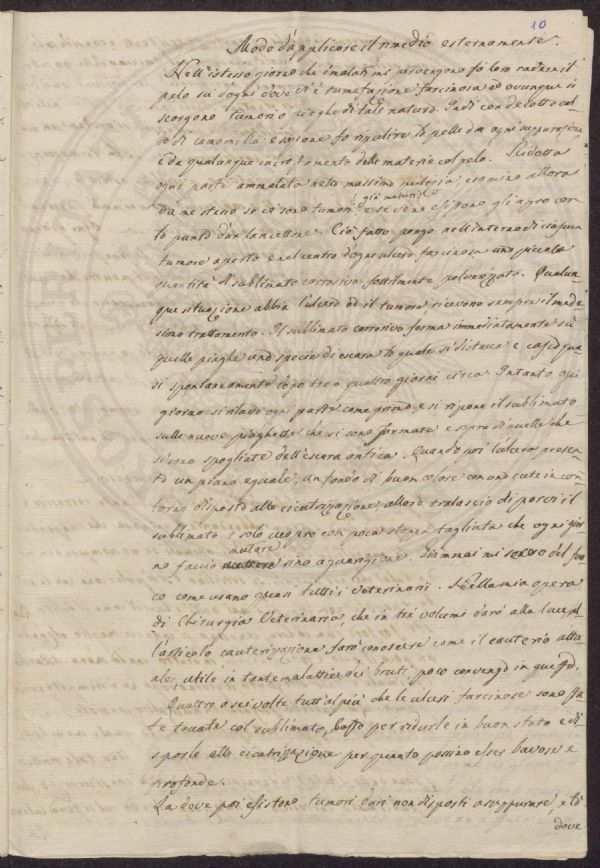 10
Modo d'applicare il rimedio esternamente.
Nell'istesso giorno che i malati mi pervengono fò loro radere il
pelo su d'ogni dove vi è tumefazione farcinosa ed ovunque si
scorgono tumori o piaghe di tale natura. Indi con decotto cal-
do di camomilla e sapone fo ripulire la pelle da ogni suppurazione
e da qualunque incrostamento delle materie col pelo. Ridotta
ogni parte ammalata nella massima pulizia, esamino allora
da me stesso se vi sono tumori già maturi, e se ve ne esistono gli apro con
la punta d'un lancettone. Ciò fatto pongo nell'interno di ciascun
tumore aperto e nel centro d'ogni ulcera farcinosa una piccola
quantità di sublimato corrosivo sottilmente polverizzato. Qualun-
que situazione abbia l'ulcera od il tumore ricevono sempre il mede-
simo trattamento. Il sublimato corrosivo forma immediatamente su
quelle piaghe una specie di escara la quale si distacca e casca qua-
si spontaneamente dopo tre o quattro giorni circa. Intanto ogni
giorno si rilava ogni parte come prima, e si ripone il sublimato
sulle nuove piaghette che si sono formate e sopra di quelle che
si sono spogliate dell'escara antica. Quando poi l'ulcera presen-
ta un piano eguale, un fondo di buon colore con una cute in con-
torno disposta alla cicatrizzazione, allora tralascio di porvi il
sublimato e solo cuopro con poca stoppa tagliata che ogni gior-
no faccio mutare sino a guarigione. Giammai mi servo del fuo-
co come usano quasi tutti i veterinarii. Nella mia opera
di Chirurgia Veterinaria, che in tre volumi darò alla luce, al-
l'articolo cauterizzazione, farò conoscere come il cauterio attu-
ale, utile in tante malattie dei bruti, poco convenga in questa.
Quattro o sei volte tutt'al più che le ulceri farcinose sono sta-
te toccate col sublimato, basta per ridurle in buon stato e di-
sposte alla cicatrizzazione per quanto possino esser bavose e
profonde.
La dove poi esistono tumori duri non disposti a suppurare, e là
dove